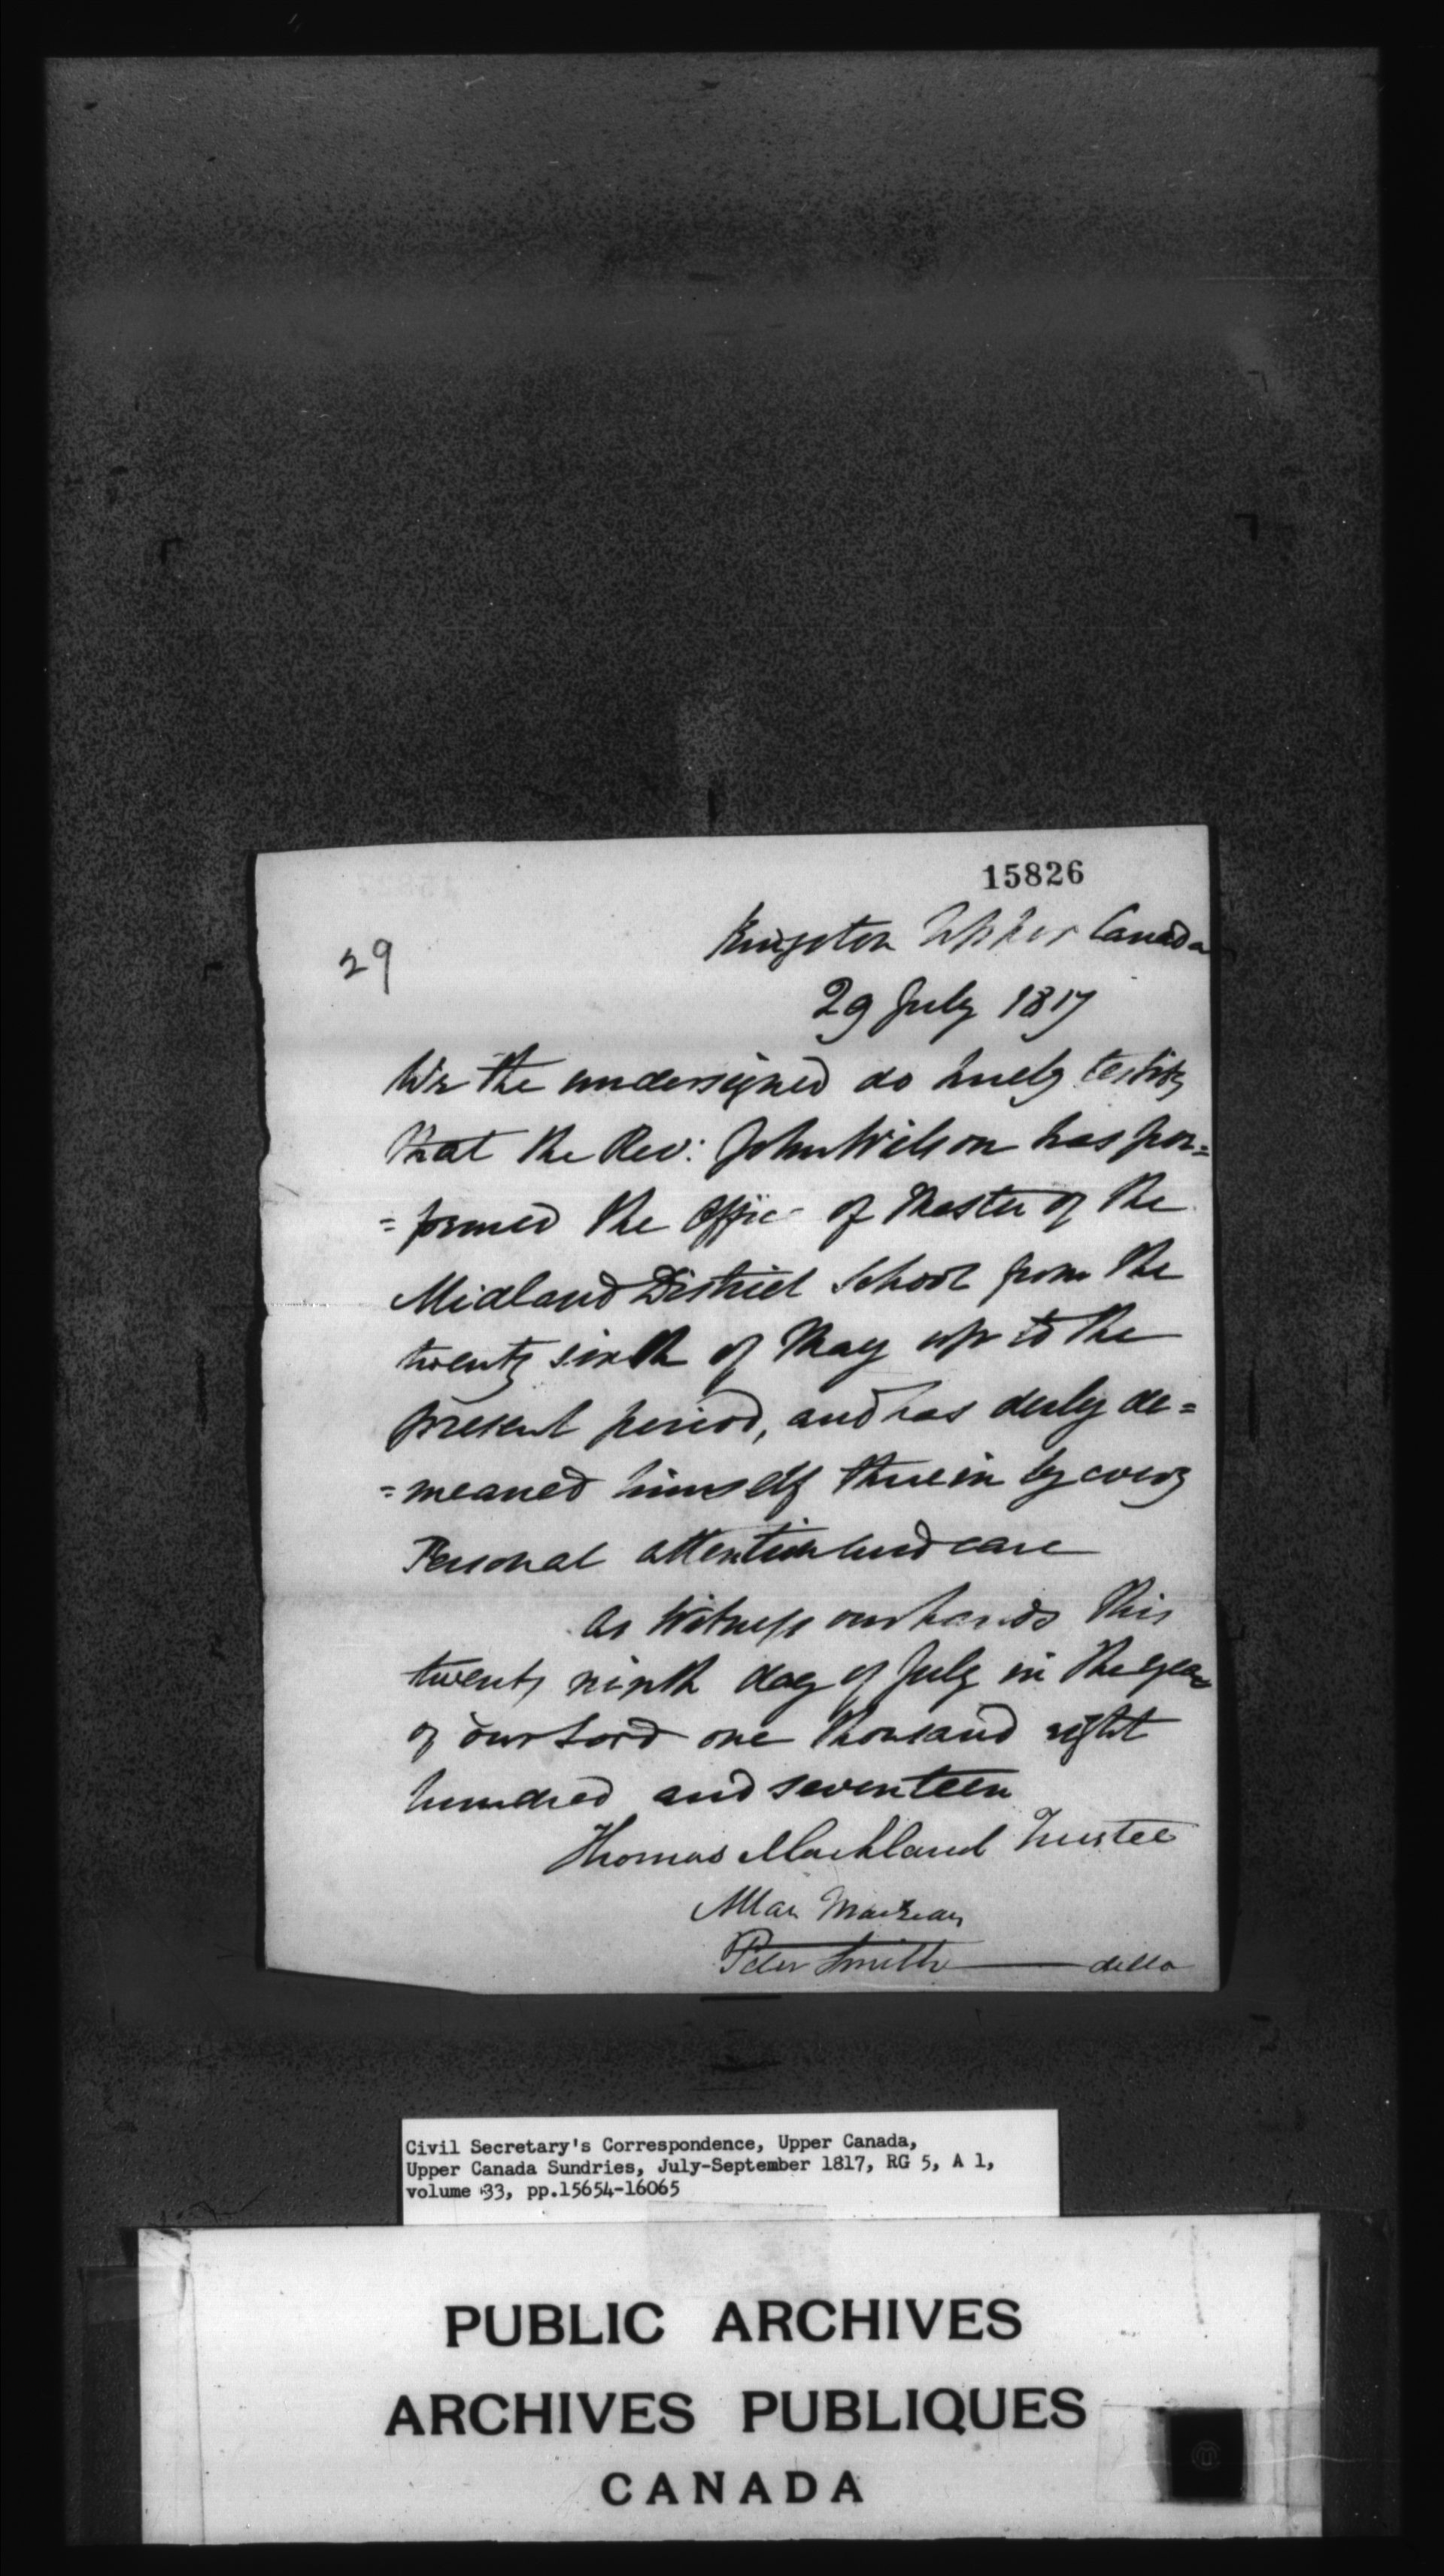 15826
29
Kingston Upper Canada
29 July 1817
We the undersigned do hereby testify
that the Rev: John Wilson has per=
=formed the Office of Master of the
Midland District School from the
twenty sixth of May up to the
present period, and has duly de=
=meaned himself therein by every
Personal attention and care
As Witness our hands this
twenty ninth day of July in the year
of our Lord one thousand eight
hundred and seventeen
Thomas Markland Trustee
Allan MacLean
Peter Smith ditto
Civil Secretary's Correspondence, Upper Canada,
Upper Canada Sundries, July-September 1817, RG 5, A 1,
volume 33, pp.15654-16065
PUBLIC ARCHIVES
ARCHIVES PUBLIQUES
CANADA